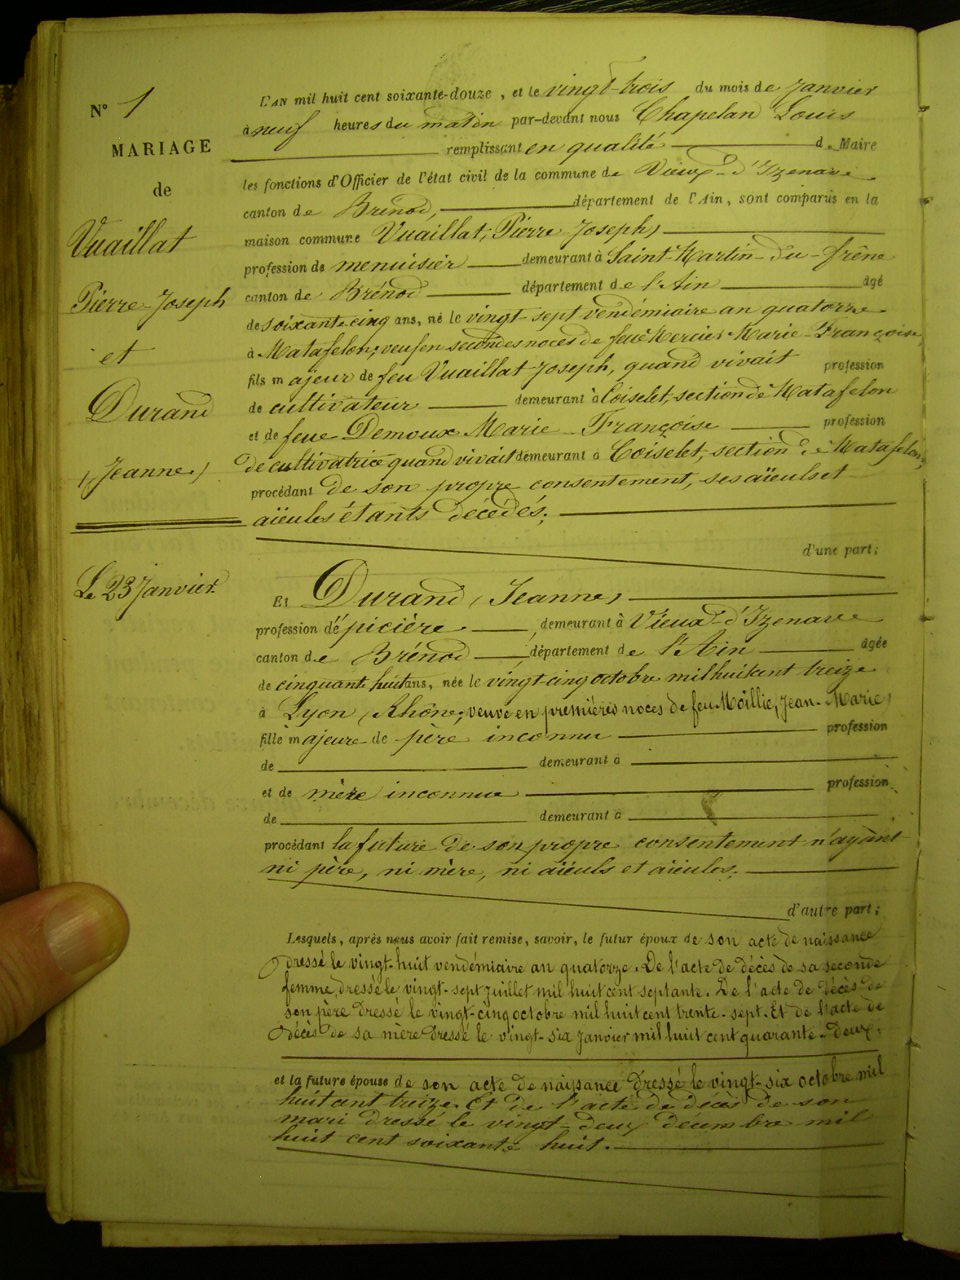 N° 1
MARIAGE
de
Vuaillat
Pierre-Joseph
et
Durand
(Jeanne)
Le 23 Janvier.
L'AN mil huit cent soixante-douze, et le vingt-trois du mois de Janvier
à neuf heures du matin par-devant nous Chapelan Louis
remplissant en qualité d. Maire
les fonctions d'Officier de l'état civil de la commune de Vieux-d'Izenave
canton de Brénod, département de l'Ain, sont comparus en la
maison commune Vuaillat, Pierre-Joseph,
profession de menuisier demeurant à Saint-Martin-du-frêne
canton de Brénod département de l'Ain âgé
de soixante cinq ans, né le vingt-sept vendémiaire an quatorze
à Matafelon, veuf en secondes noces de feue Mercier Marie-Françoise,
fils majeur de feu Vuaillat Joseph, quand vivait profession
de cultivateur demeurant à Coiselet, section de Matafelon
et de feue Demoux Marie-Françoise profession
de cultivatrice quand vivait demeurant à Coiselet, section de Matafelon,
procédant de son propre consentement, ses aïeuls et
aïeules étants décédés;
d'une part;
Et Durand (Jeanne)
profession d'épicière, demeurant à Vieux-d'Izenave
canton de Brénod département de l'Ain âgée
de cinquante huit ans, née le vingt-cinq octobre mil huit cent treize
à Lyon (Rhône, veuve en premières noces de feu Moillie, Jean-Marie)
fille majeure de père inconnu profession
de demeurant à
et de mère inconnue profession
de demeurant à
procédant la future de son propre consentement n'ayant
ni père, ni mère, ni aïeuls et aïeules.
d'autre part;
Lesquels, après nous avoir fait remise, savoir, le futur époux de son acte de naissance
dressé le vingt-huit vendémiaire an quatorze. De l'acte de décès de sa seconde
femme dressé le vingt-sept juillet mil huit cent septante. De l'acte de décès de
son père dressé le vingt-cinq octobre mil huit cent trente-sept. Et de l'acte de
décès de sa mère dressé le vingt-six janvier mil huit cent quarante-deux;
et la future épouse de son acte de naissance dressé le vingt-six octobre mil
huit cent treize. Et de l'acte de décès de son
mari dressé le vingt-deux décembre mil
huit cent soixante huit.